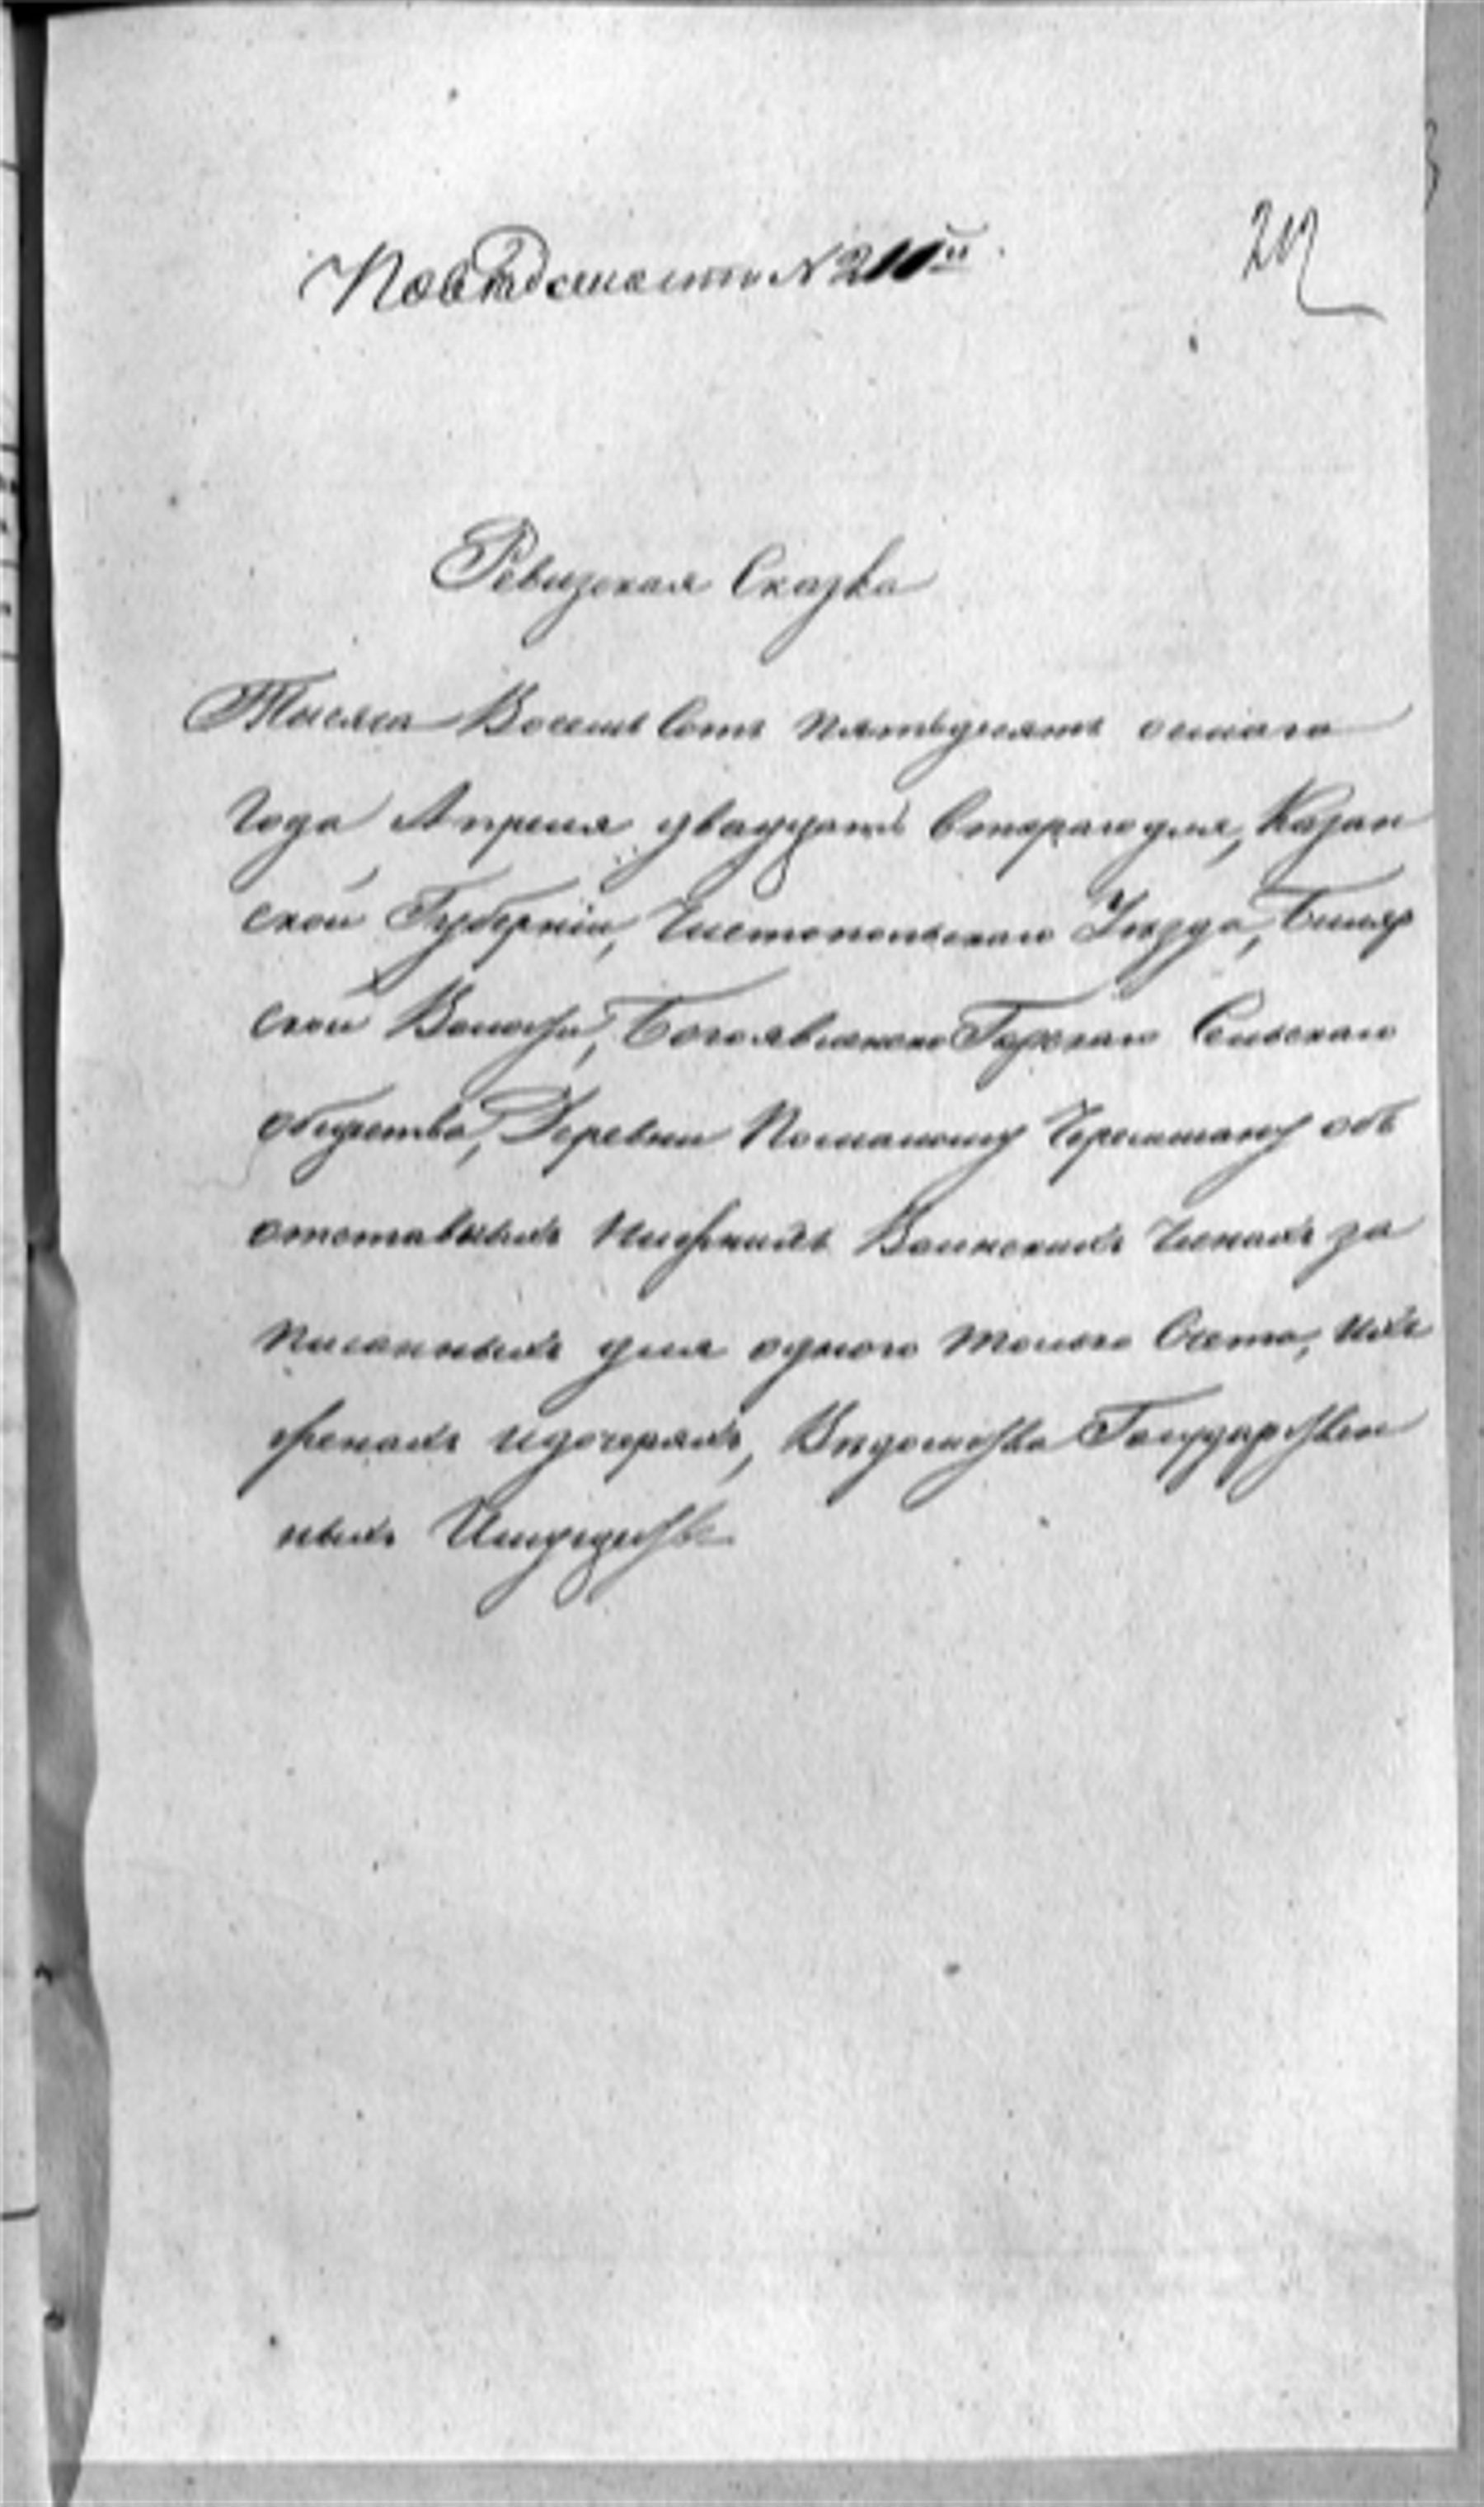 По вѣдомости N 211й
212
Ревизская Сказка
Тысяча Восемь Сотъ пятьдесятъ осмаго
Года Апреля двадцать втораго дня, Казан
ской Губерніи, Чистопольскаго Уѣзда, Биляр
ской Волости, Богоявленско Горскаго Сельскаго
общества, Деревни Черемшану объ
отставныхъ Нижнихъ Воинскихъ Чинахъ за
писанныхъ для одного только Счета, ихъ
женахъ и дочеряхъ, Вѣдомства Государствен
ныхъ Имуществъ